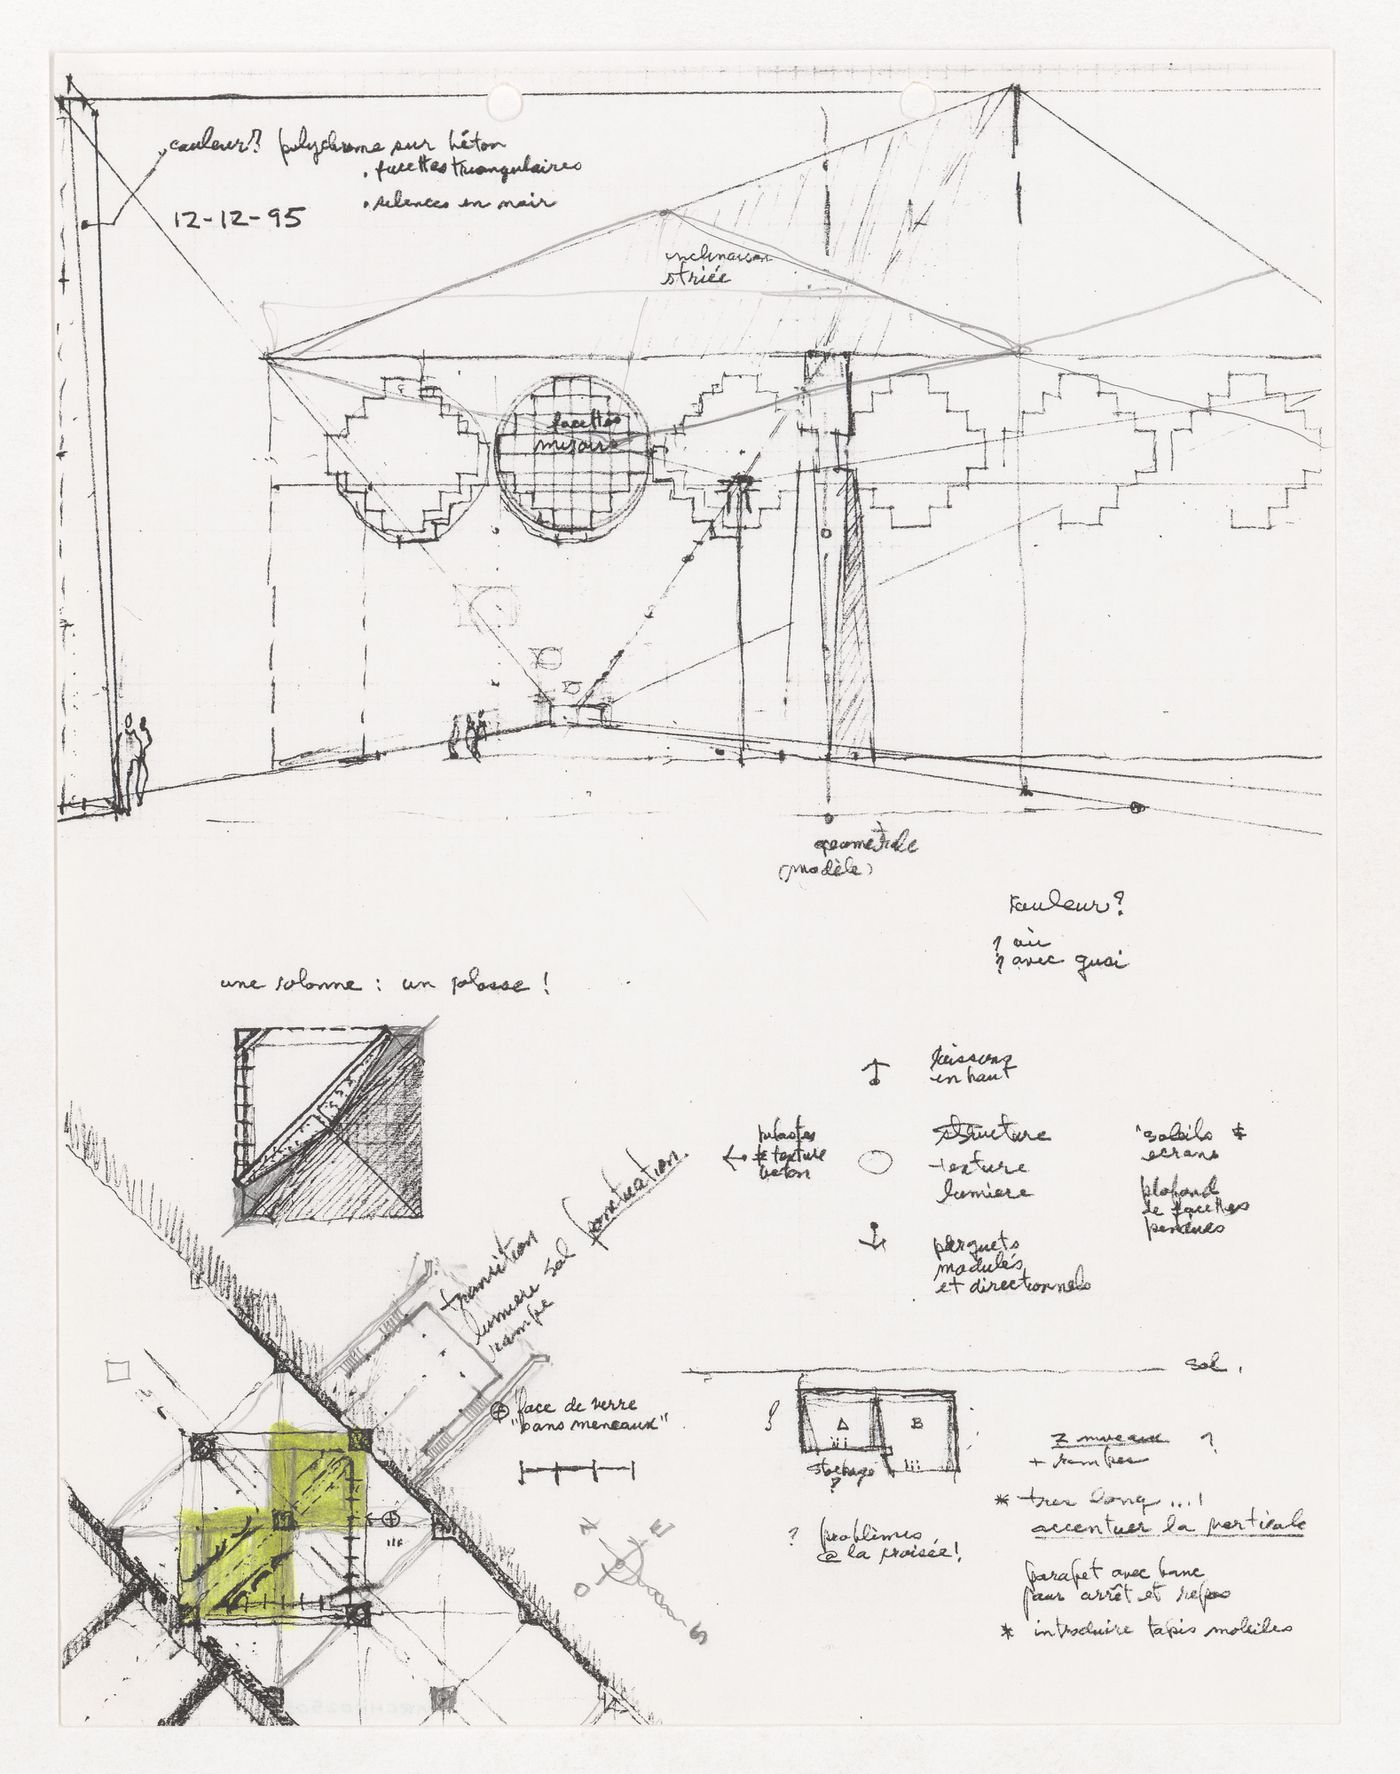 couleur? polychrome sur béton
. facettes triangulaires
. silences en noir
12-12-95
inclinaison
striée
facettes
miroir
geométrale
(modèle)
couleur?
? où
? avec quoi
une colonne : un passe !
caissons
en haut
structure
texture
lumiere
"soleils &
écrans
plafond
de facettes
pendues
& texture
béton
parquets
modulés
et directionnels
transition
lumiere sol ponctuation.
rampe
face de verre
"sans meneaux"
sol.
A
B
stockage
?
2 niveaux ?
+ rampes
* tres long ...!
accentuer la verticale
? problèmes
@ la croisée!
parapet avec banc
pour arrêt et repos
* introduire tapis mobiles
N
E
O
S